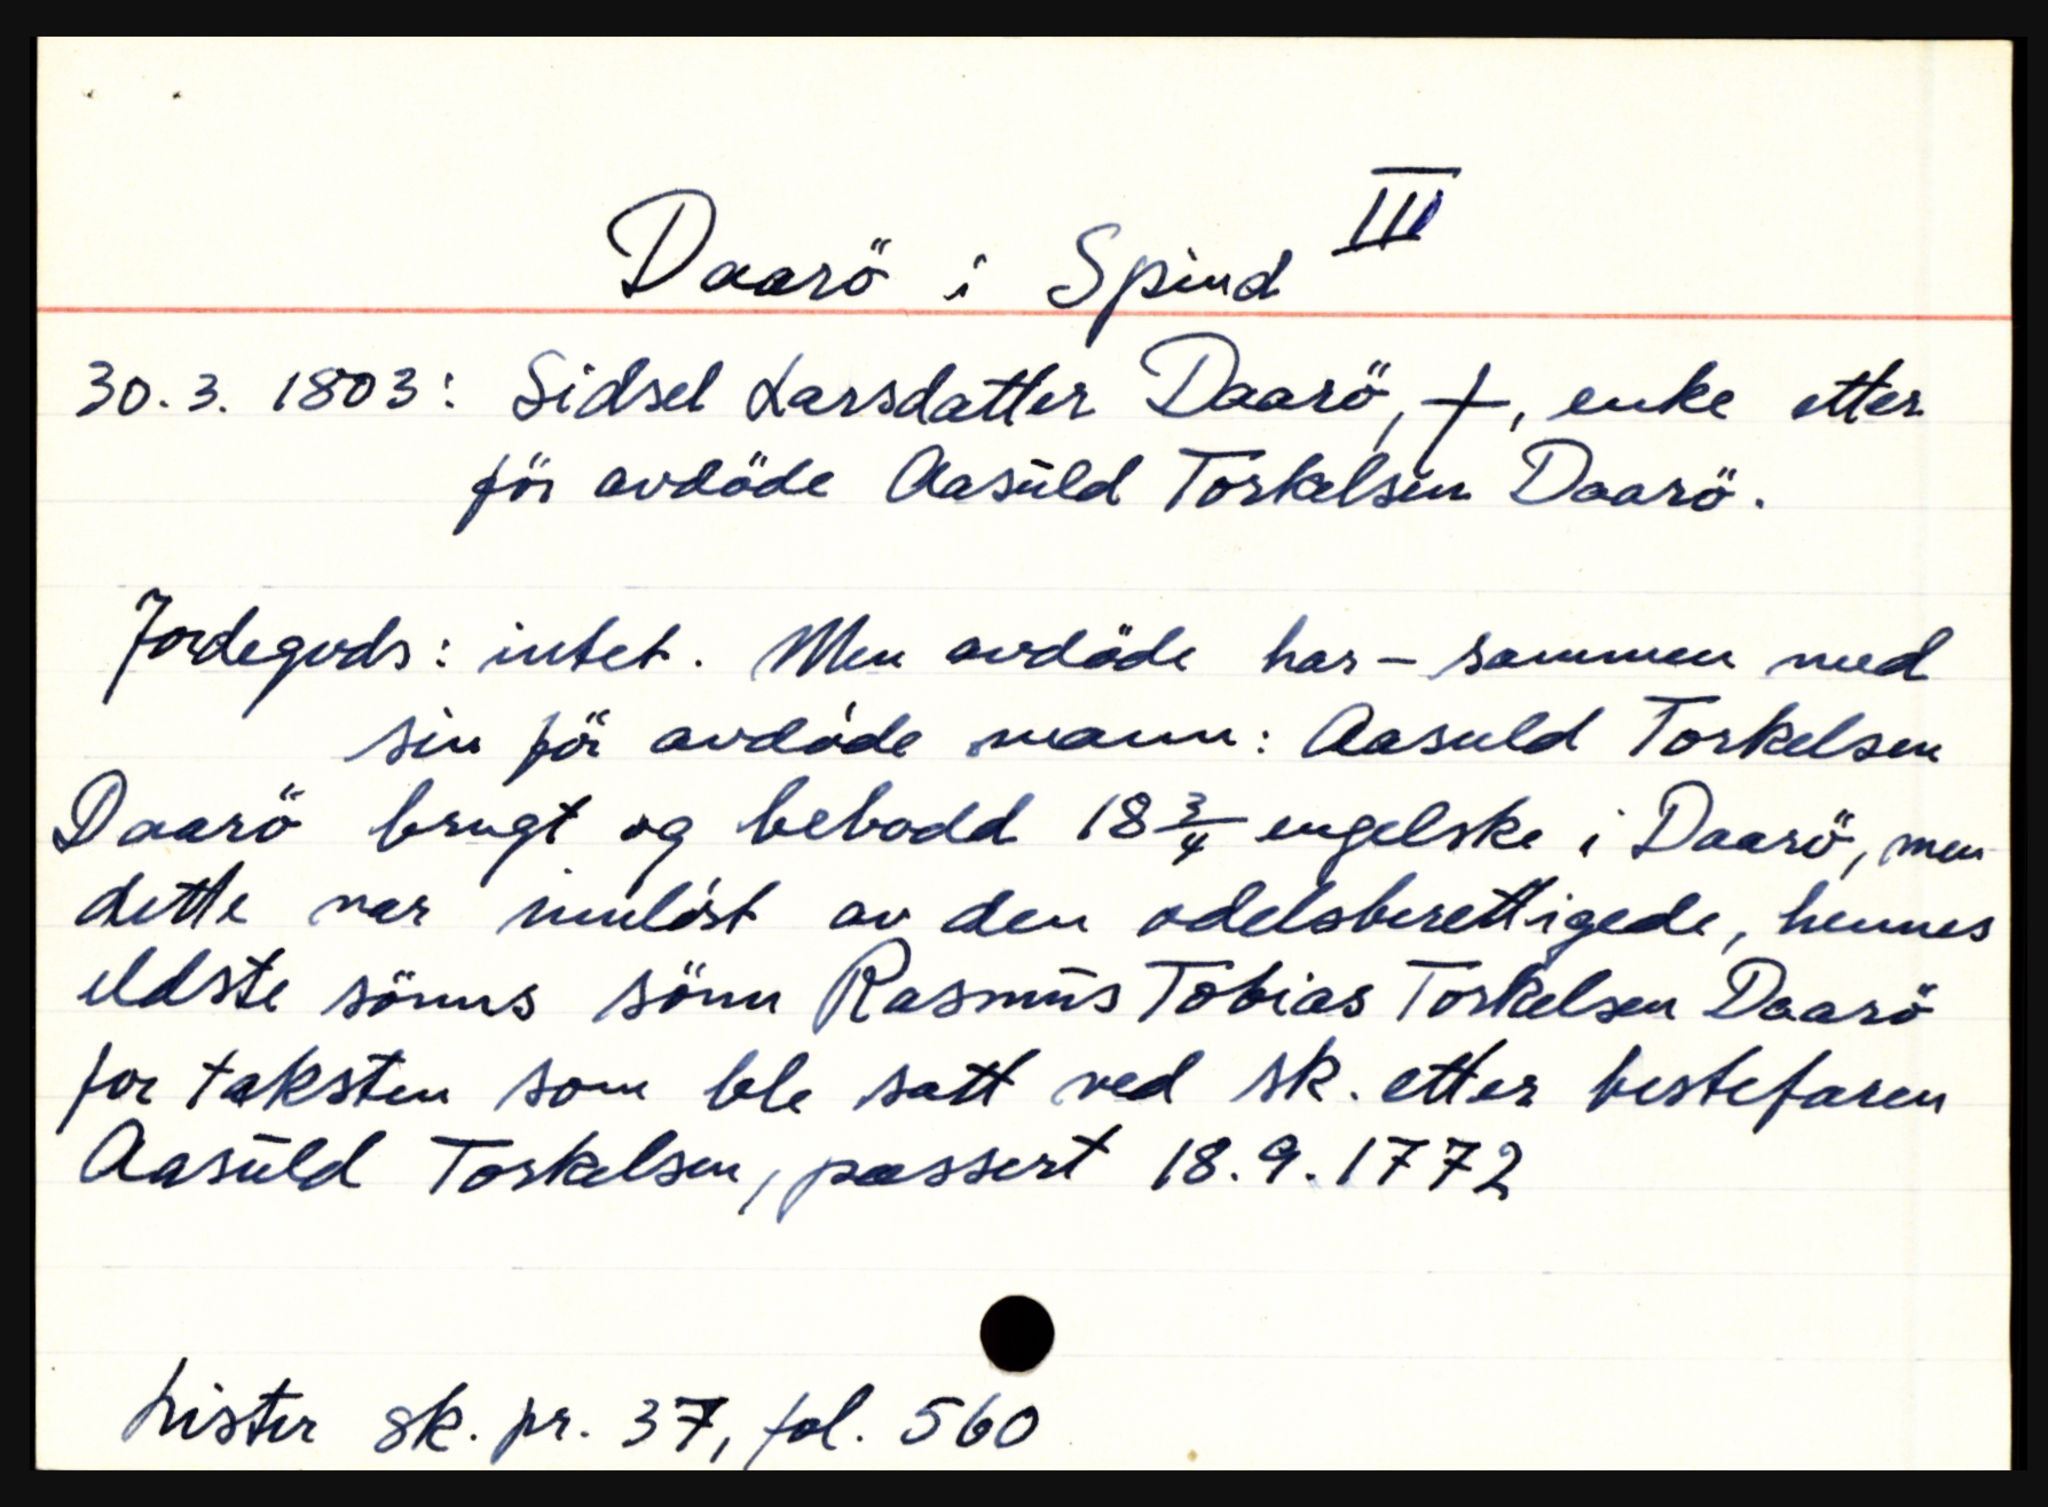 Daarö i Spind III
30.3. 1803: Sidsel Larsdatter Daarö, †, enke etter
för avdöde Aasuld Torkelsen Daarö.
Jordegods: intet. Men avdöde har – sammen med
sin för avdöde mann: Aasuld Torkelsen
Daarö brugt og bebodd 18 3/4 engelske i Daarö, men
dette var innlöst av den odelsberettigede, hennes
eldste sönns sönn Rasmus Tobias Torkelsen Daarö
for taksten som ble satt ved sk. etter bestefaren
Aasuld Torkelsen, passert 18.9.1772
Lister sk. pr. 37, fol. 560